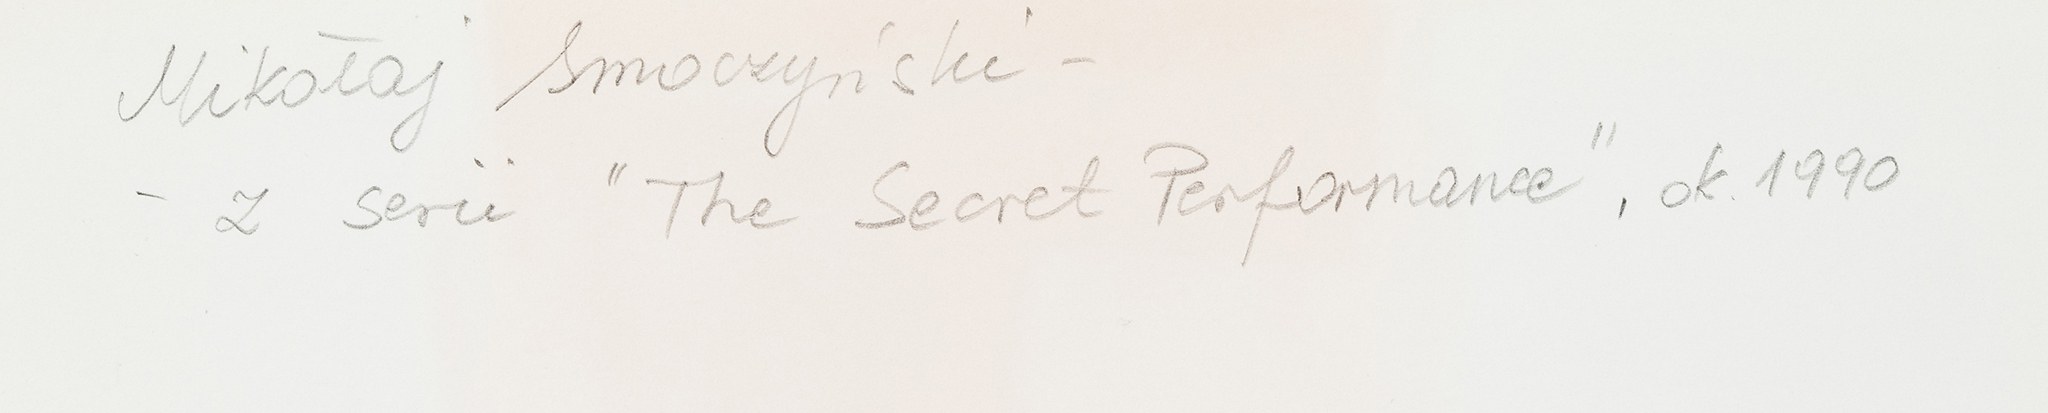 Mikołaj Smoczyński -
- z serii "The Secret Performance", ok. 1990